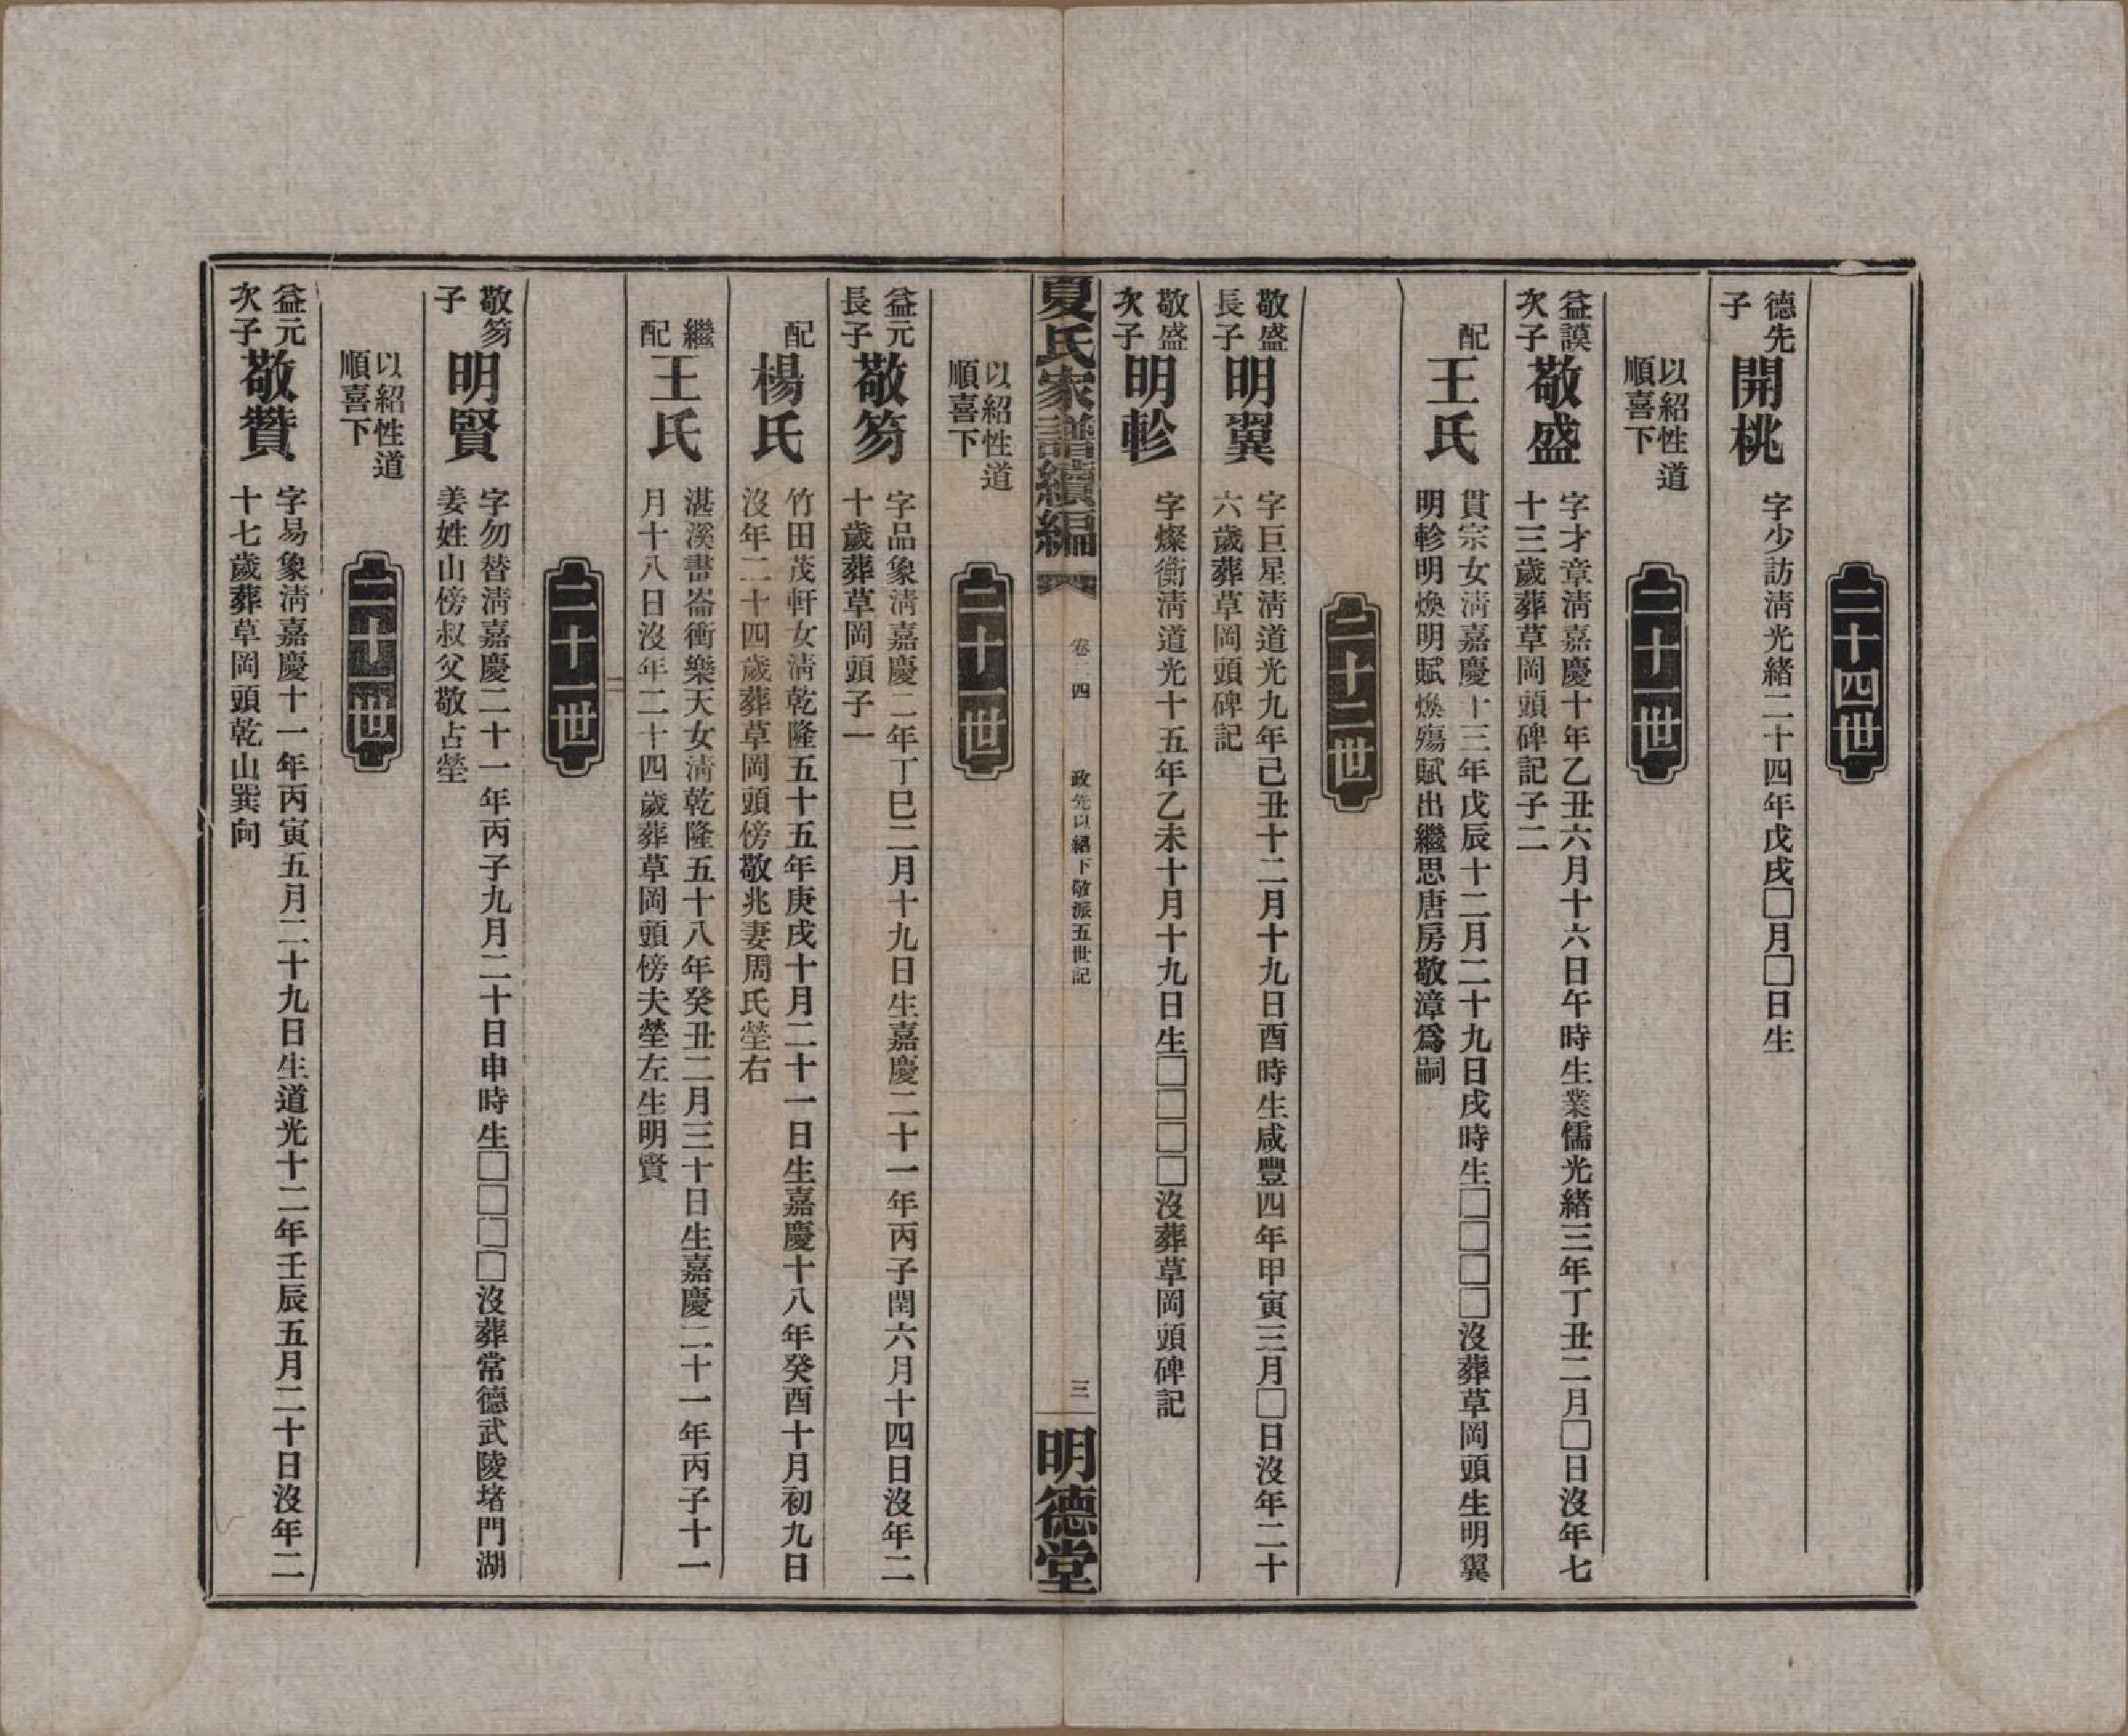 二十四世
德先子
開桃
字少訪淸光緒二十四年戊戌□月□日生
二十一世
以紹性道
順喜下
益謨次子
敬盛
字才章淸嘉慶十年乙丑六月十六日午時生業儒光緒三年丁丑二月□日沒年七
十三歲葬草岡頭碑記子二
配
王氏
貫宗女淸嘉慶十三年戊辰十二月二十九日戌時生□□□□沒葬草岡頭生明翼
明軫明煥明賦煥殤賦出繼思唐房敬漳爲嗣
二十二世
敬盛長子
明翼
字巨星淸道光九年己丑十二月十九日酉時生咸豐四年甲寅三月□日沒年二十
六歲葬草岡頭碑記
敬盛次子
明軫
字燦衡淸道光十五年乙未十月十九日生□□□□沒葬草岡頭碑記
夏氏家譜續編
卷二四
政先以紹下敬派五世記
三
明德堂
二十一世
以紹性道
順喜下
益元長子
敬笏
字品象淸嘉慶二年丁巳二月十九日生嘉慶二十一年丙子閏六月十四日沒年二
十歲葬草岡頭子一
配
楊氏
竹田茂軒女淸乾隆五十五年庚戌十月二十一日生嘉慶十八年癸酉十月初九日
沒年二十四歲葬草岡頭傍敬兆妻周氏塋右
繼配
王氏
湛溪書崙衝樂天女淸乾隆五十八年癸丑二月三十日生嘉慶二十一年丙子十一
月十八日沒年二十四歲葬草岡頭傍夫塋左生明賢
二十二世
敬笏子
明賢
字勿替淸嘉慶二十一年丙子九月二十日申時生□□□□沒葬常德武陵堵門湖
姜姓山傍叔父敬占塋
二十一世
以紹性道
順喜下
益元次子
敬贊
字易象淸嘉慶十一年丙寅五月二十九日生道光十二年壬辰五月二十日沒年二
十七歲葬草岡頭乾山巽向